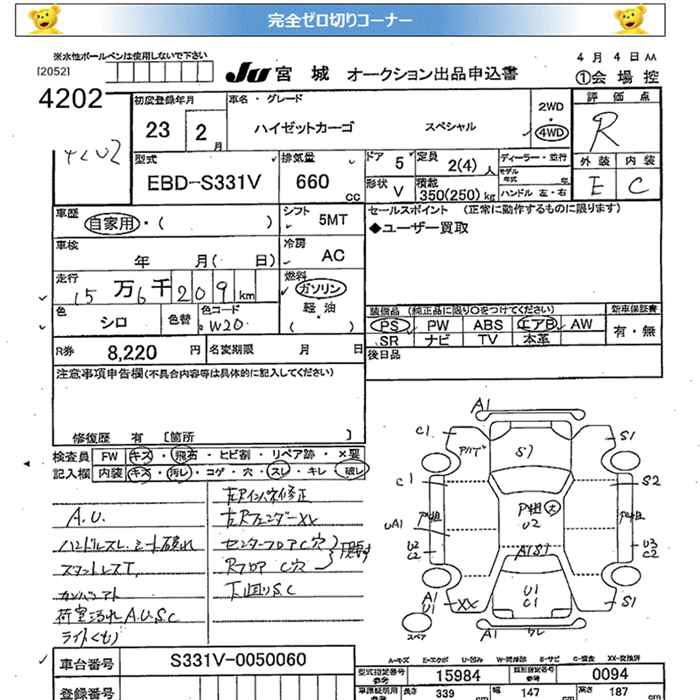 完全ゼロ切りコーナー
※水性ボールペンは使用しないで下さい
[2052]
JU 宮城 オークション出品申込書
4月4日AA
①会場控
4202
4202
初度登録年月
23 2月
車名・グレード
ハイゼットカーゴ スペシャル
2WD
4WD
評価点
R
外装 内装
E C
型式
EBD-S331V
排気量
660 cc
ドア 5
形状 V
定員 2(4)人
積載 350(250)kg
ディーラー・並行
モデル年式
ハンドル 左・右
車歴
自家用・( )
シフト 5MT
セールスポイント (正常に動作するものに限ります)
◆ユーザー買取
車検
年 月( 日)
冷房 AC
走行
15万6千209km
燃料
ガソリン
軽・油
( )
色 シロ
色替
色コード W20
装備品 (純正品に限り○をつけてください)
新車保証書
PS PW ABS エアB AW
SR ナビ TV 本革
有・無
R券 8,220円
名変期限 月 日
後日品
注意事項申告欄(不具合内容等は具体的に記入してください)
修復歴 有 [箇所 ]
検査員 FW キズ・飛石・ヒビ割・リペア跡・×要
記入欄 内装 キズ・汚レ・コゲ・穴・スレ・キレ・破レ
A.U.
ハンドルスレ.シート破れ
荷室汚れA.U.S.C
ライトくもり
左Rインパネ修正
左RフェンダーXX
センターフロアC穴
RフロアC穴
下回りS.C
A1
C1 S1
S1
C1 S2
U2
UA1
U2 C2
U3 C2
A1 U1
XX
U1 C1
S1
スペア
A1 ワレ
A-キズ E-エクボ U-凹み W-補修跡 S-サビ C-腐食 XX-交換済
車台番号 S331V-0050060
登録番号
型式指定番号 参考 15984
類別区分番号 参考 0094
長さ 339 cm 幅 147 cm 高さ 187 cm